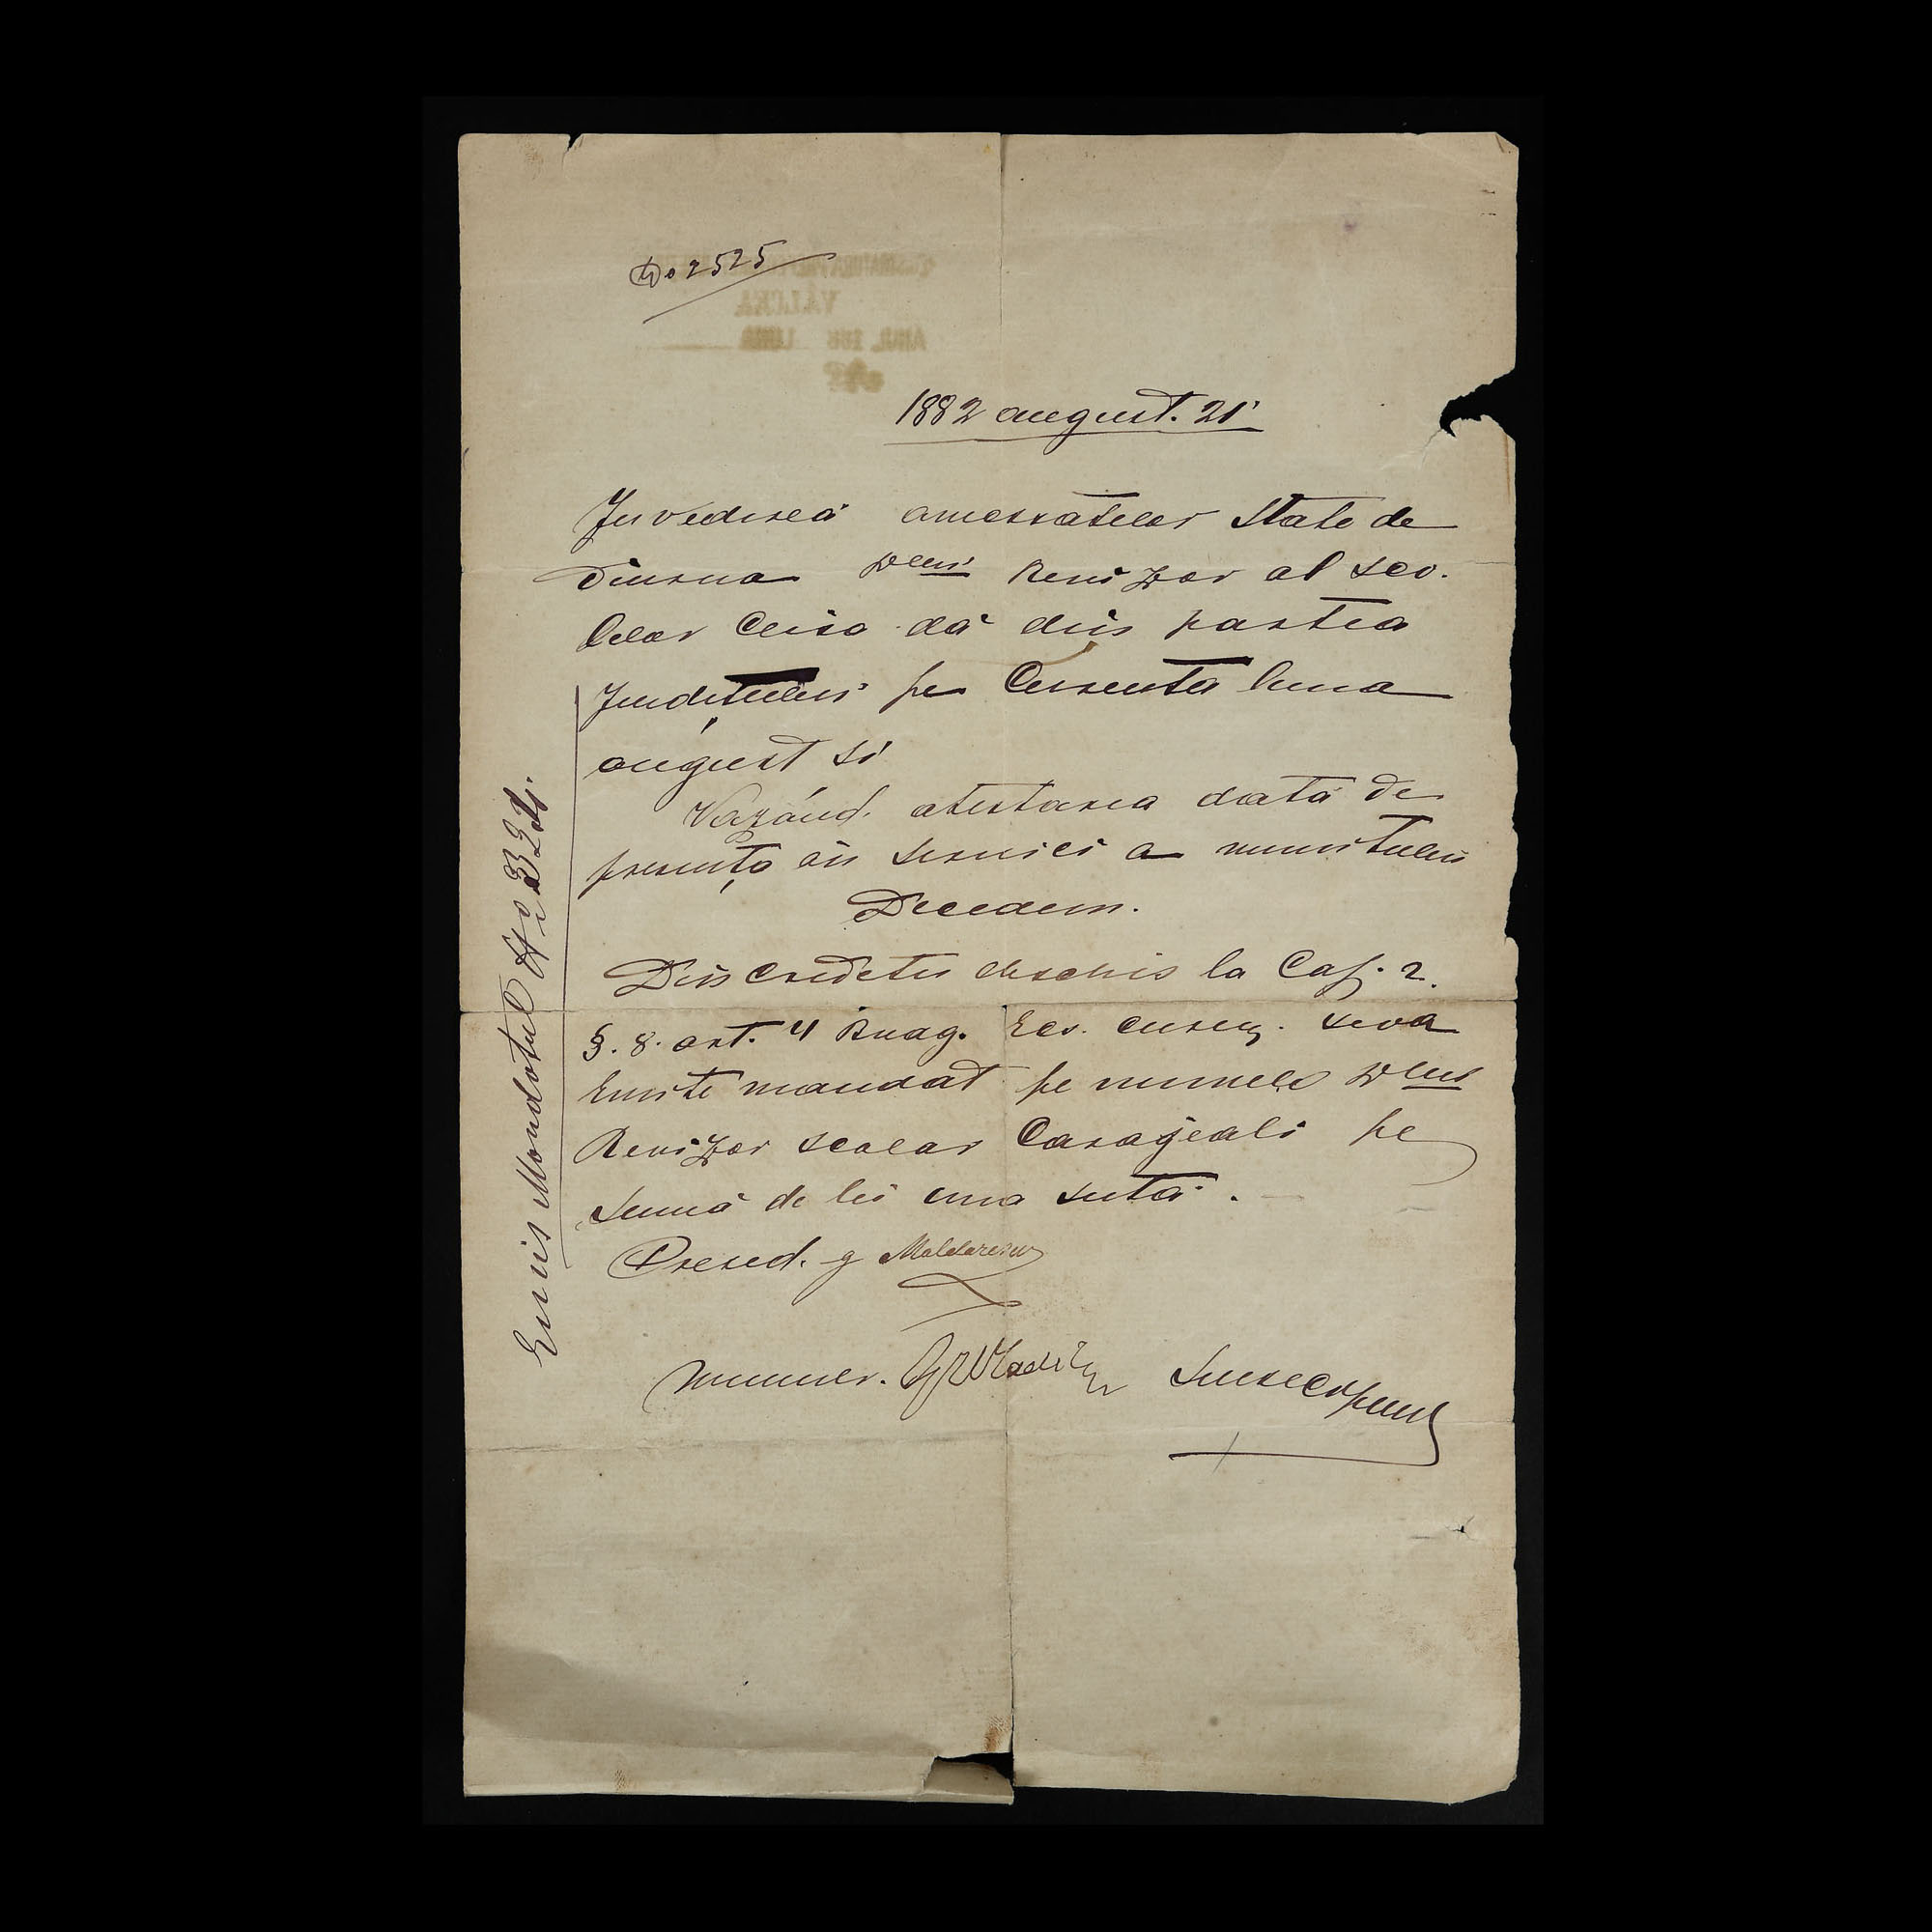 No 2525
1882 august. 21
In vederea anecsatelor State de
Diurna Dlui Revizor al sco.
lelor ce i sa dă din partea
Judeţului pe Curenta luna
august si
Vazând. atestarea data de
presenţa in servici a numitului
Decidem.
Din Creditu deschis la Cap. 2.
§. 8. art. 4 Buag. Ecs. curen. seva
Emite mandat pe numele Dlui
Revizor scolar Carageali pe
suma de lei una suta.
Presed. g Maldarescu
Emis Mandatul No 332